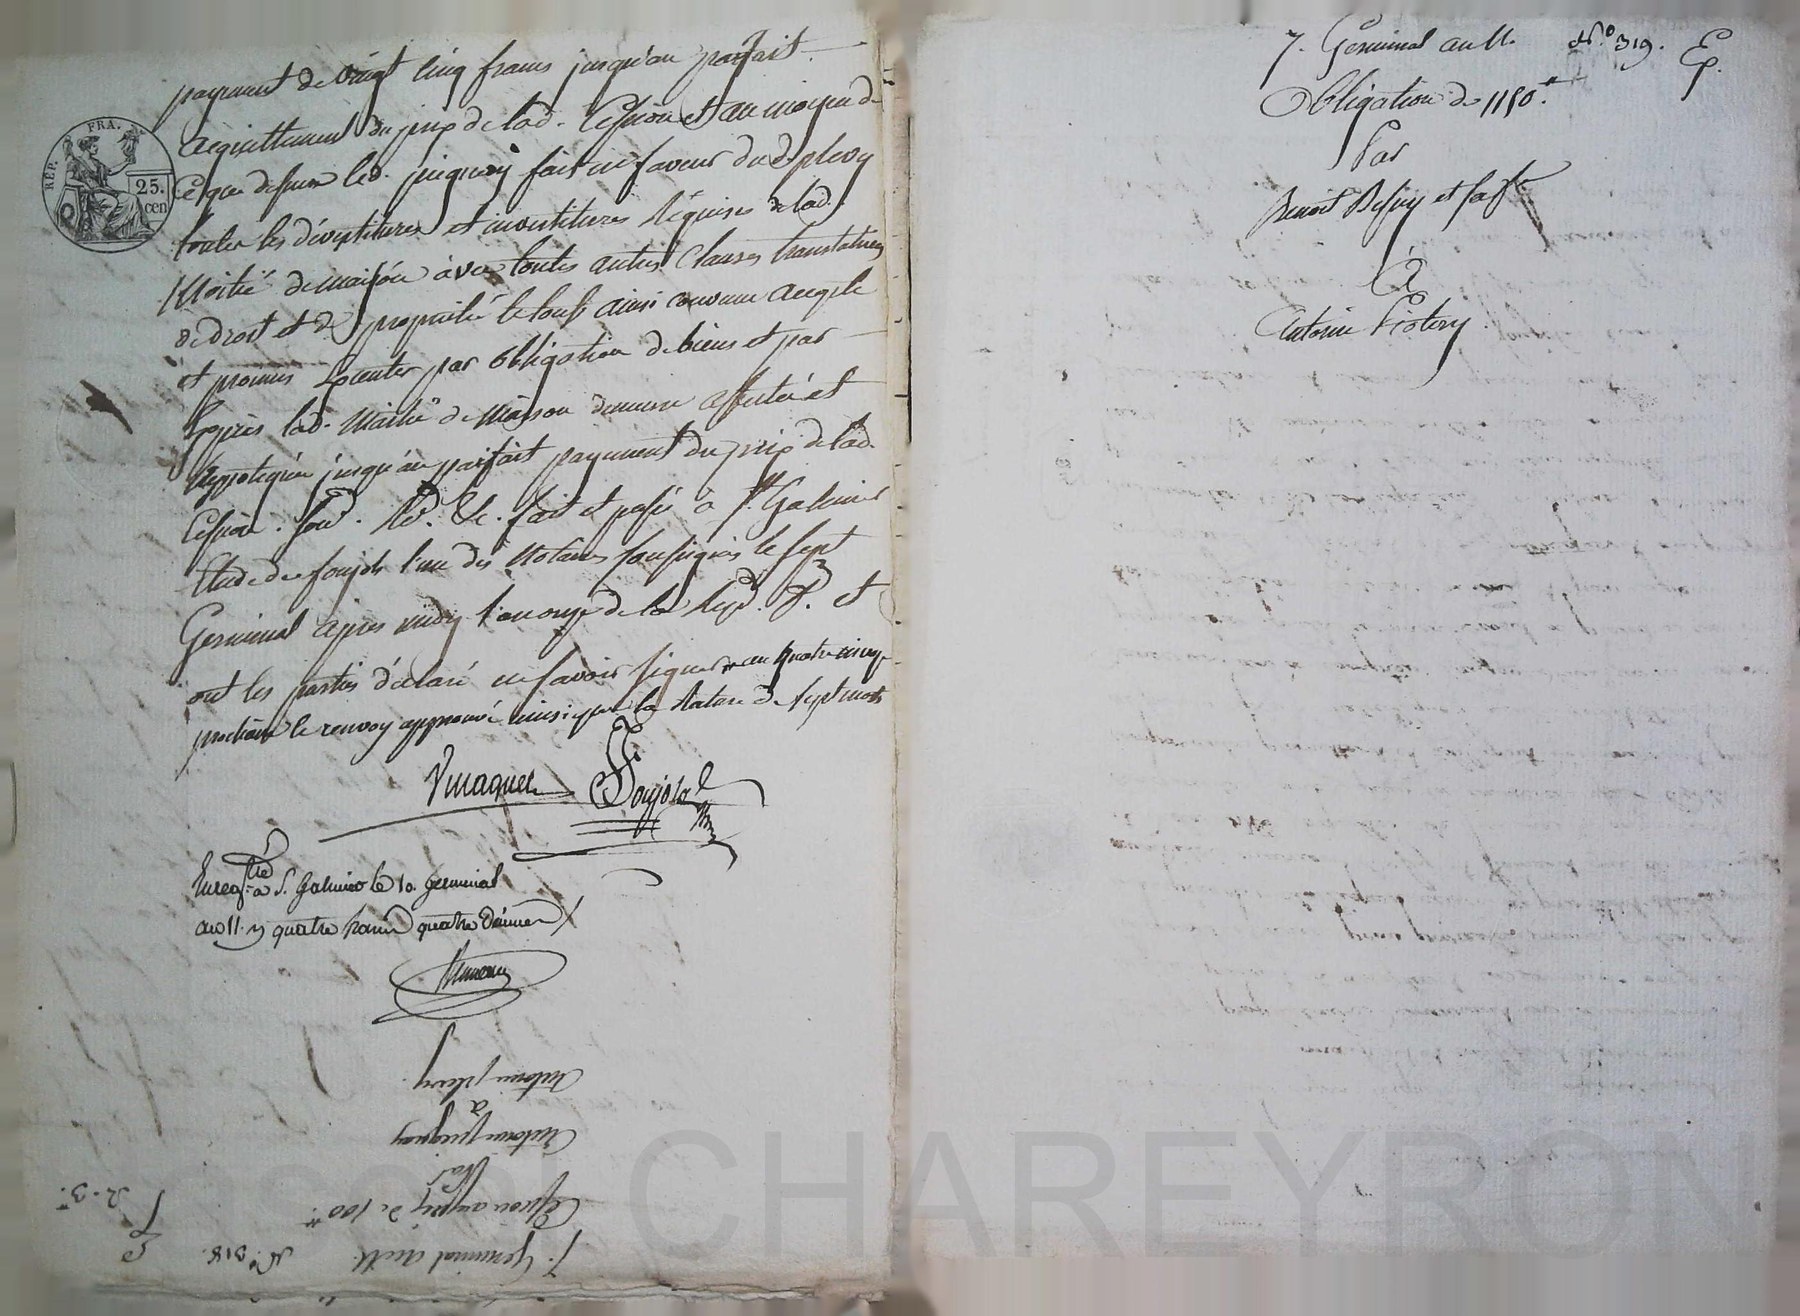 payement de vingt cinq francs jusqu'au parfait
acquittement du prix de lad. Cession et au moyen de
ce que dessus led. juegnay fait en faveur dud. plevy
toutes les dévestitures et investitures Réquises de lad.
Moitié de maison avec toutes autres Clauses translatives
de droit et de propriété le tout ainsi convenu accepté
et promis par obligation de biens et par
Exprès lad. Moitié de Maison demeure affectée et
hyppotéquée jusqu'au parfait payement du prix de lad.
Cession. fait et passé à St Galmier
Etude de foujols l'un des Notaires soussignés le sept
Germinal après midy l'an onze de la Rep. f. et
ont les parties déclaré ne savoir signer
prochain le renvoy approuvé ainsi que la Rature de sept mots
REP. FRA.
25.
cen
Vmaguet Foujols
Enregtré à S. Galmier le 10. Germinal
an 11. quatre francs quatre
7. Germinal an 11. No. 318.
Cession au prix de 100tt
Par
Antoine juegnay
à
Antoine plevy
R. 3.
7. Germinal an 11. No. 319.
Obligation de 1150.tt
Par
Benoit et sa fe
à
Antoine
CHAREYRON